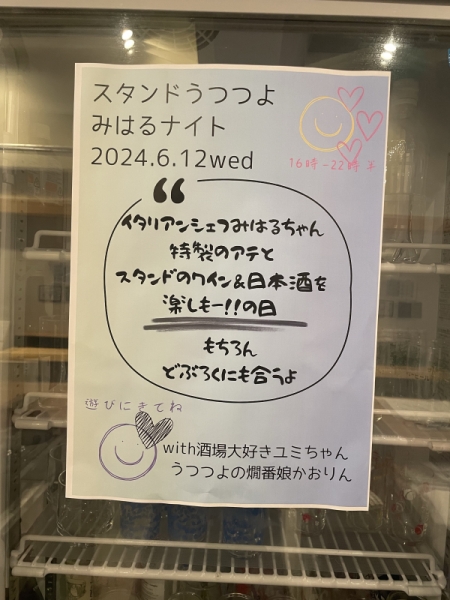 スタンドうつつよ
みはるナイト
2024.6.12wed
16時-22時半
イタリアンシェフみはるちゃん
特製のアテと
スタンドのワイン&日本酒を
楽しもー!!の日
もちろん
どぶろくにも合うよ
遊びにきてね
with酒場大好きユミちゃん
うつつよの燗番娘かおりん